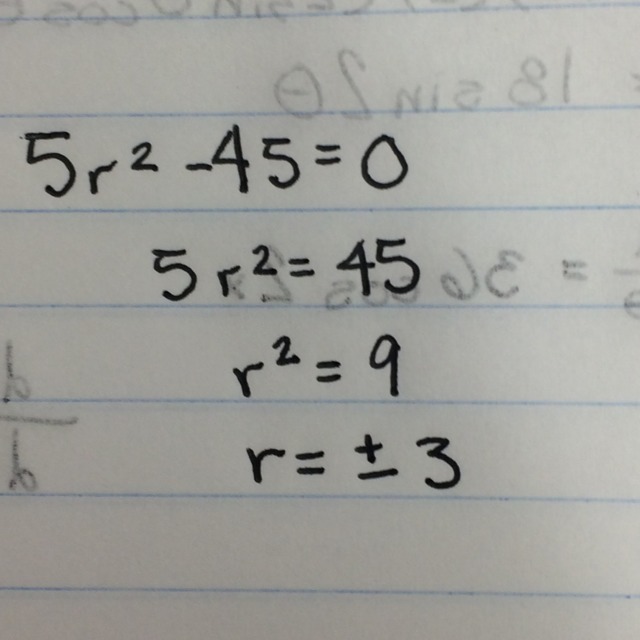 5r² - 45 = 0
5r² = 45
r² = 9
r = ± 3